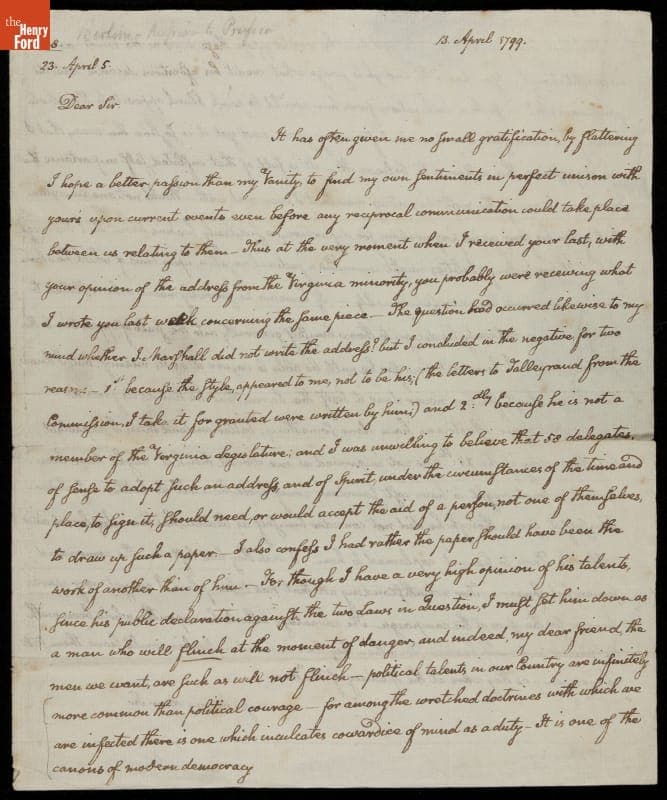 the
Henry
Ford
8.
Berlin
13. April 1799.
23. April 5.
Dear Sir
It has often given me no small gratification, by flattering
I hope a better passion than my Vanity, to find my own sentiments in perfect unison with
yours upon current events even before any reciprocal communication could take place
between us relating to them — Thus at the very moment when I received your last, with
your opinion of the address from the Virginia minority, you probably were receiving what
I wrote you last week concerning the same piece — The question had occurred likewise to my
mind whether J. Marshall did not write the address? but I concluded in the negative, for two
reasons — 1st because the style, appeared to me, not to be his; (the letters to Talleyrand from the
Commission, I take it for granted were written by him,) and 2.dly because he is not a
member of the Virginia Legislature; and I was unwilling to believe that 58 delegates,
of sense to adopt such an address, and of spirit, under the circumstances of the time and
place, to sign it, should need, or would accept the aid of a person, not one of themselves,
to draw up such a paper — I also confess I had rather the paper should have been the
work of another than of him — For though I have a very high opinion of his talents,
since his public declaration against the two Laws in question, I must set him down as
a man who will flinch at the moment of danger, and indeed, my dear friend, the
men we want, are such as will not flinch — political talents in our Country are infinitely
more common than political courage — for among the wretched doctrines with which we
are infected there is one which inculcates cowardice of mind as a duty — It is one of the
canons of modern democracy